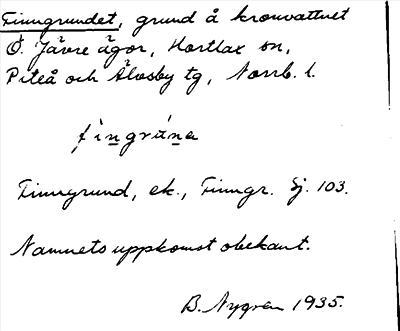 Finngrundet, grund å kronvattnet
Ö. Jävre ägor, Hortlax sn,
Piteå och Älvsby tg, Norrb. l.
Finngrund, ek., Finngr. Sj. 103.
Namnets uppkomst obekant.
B. Nygren 1935.